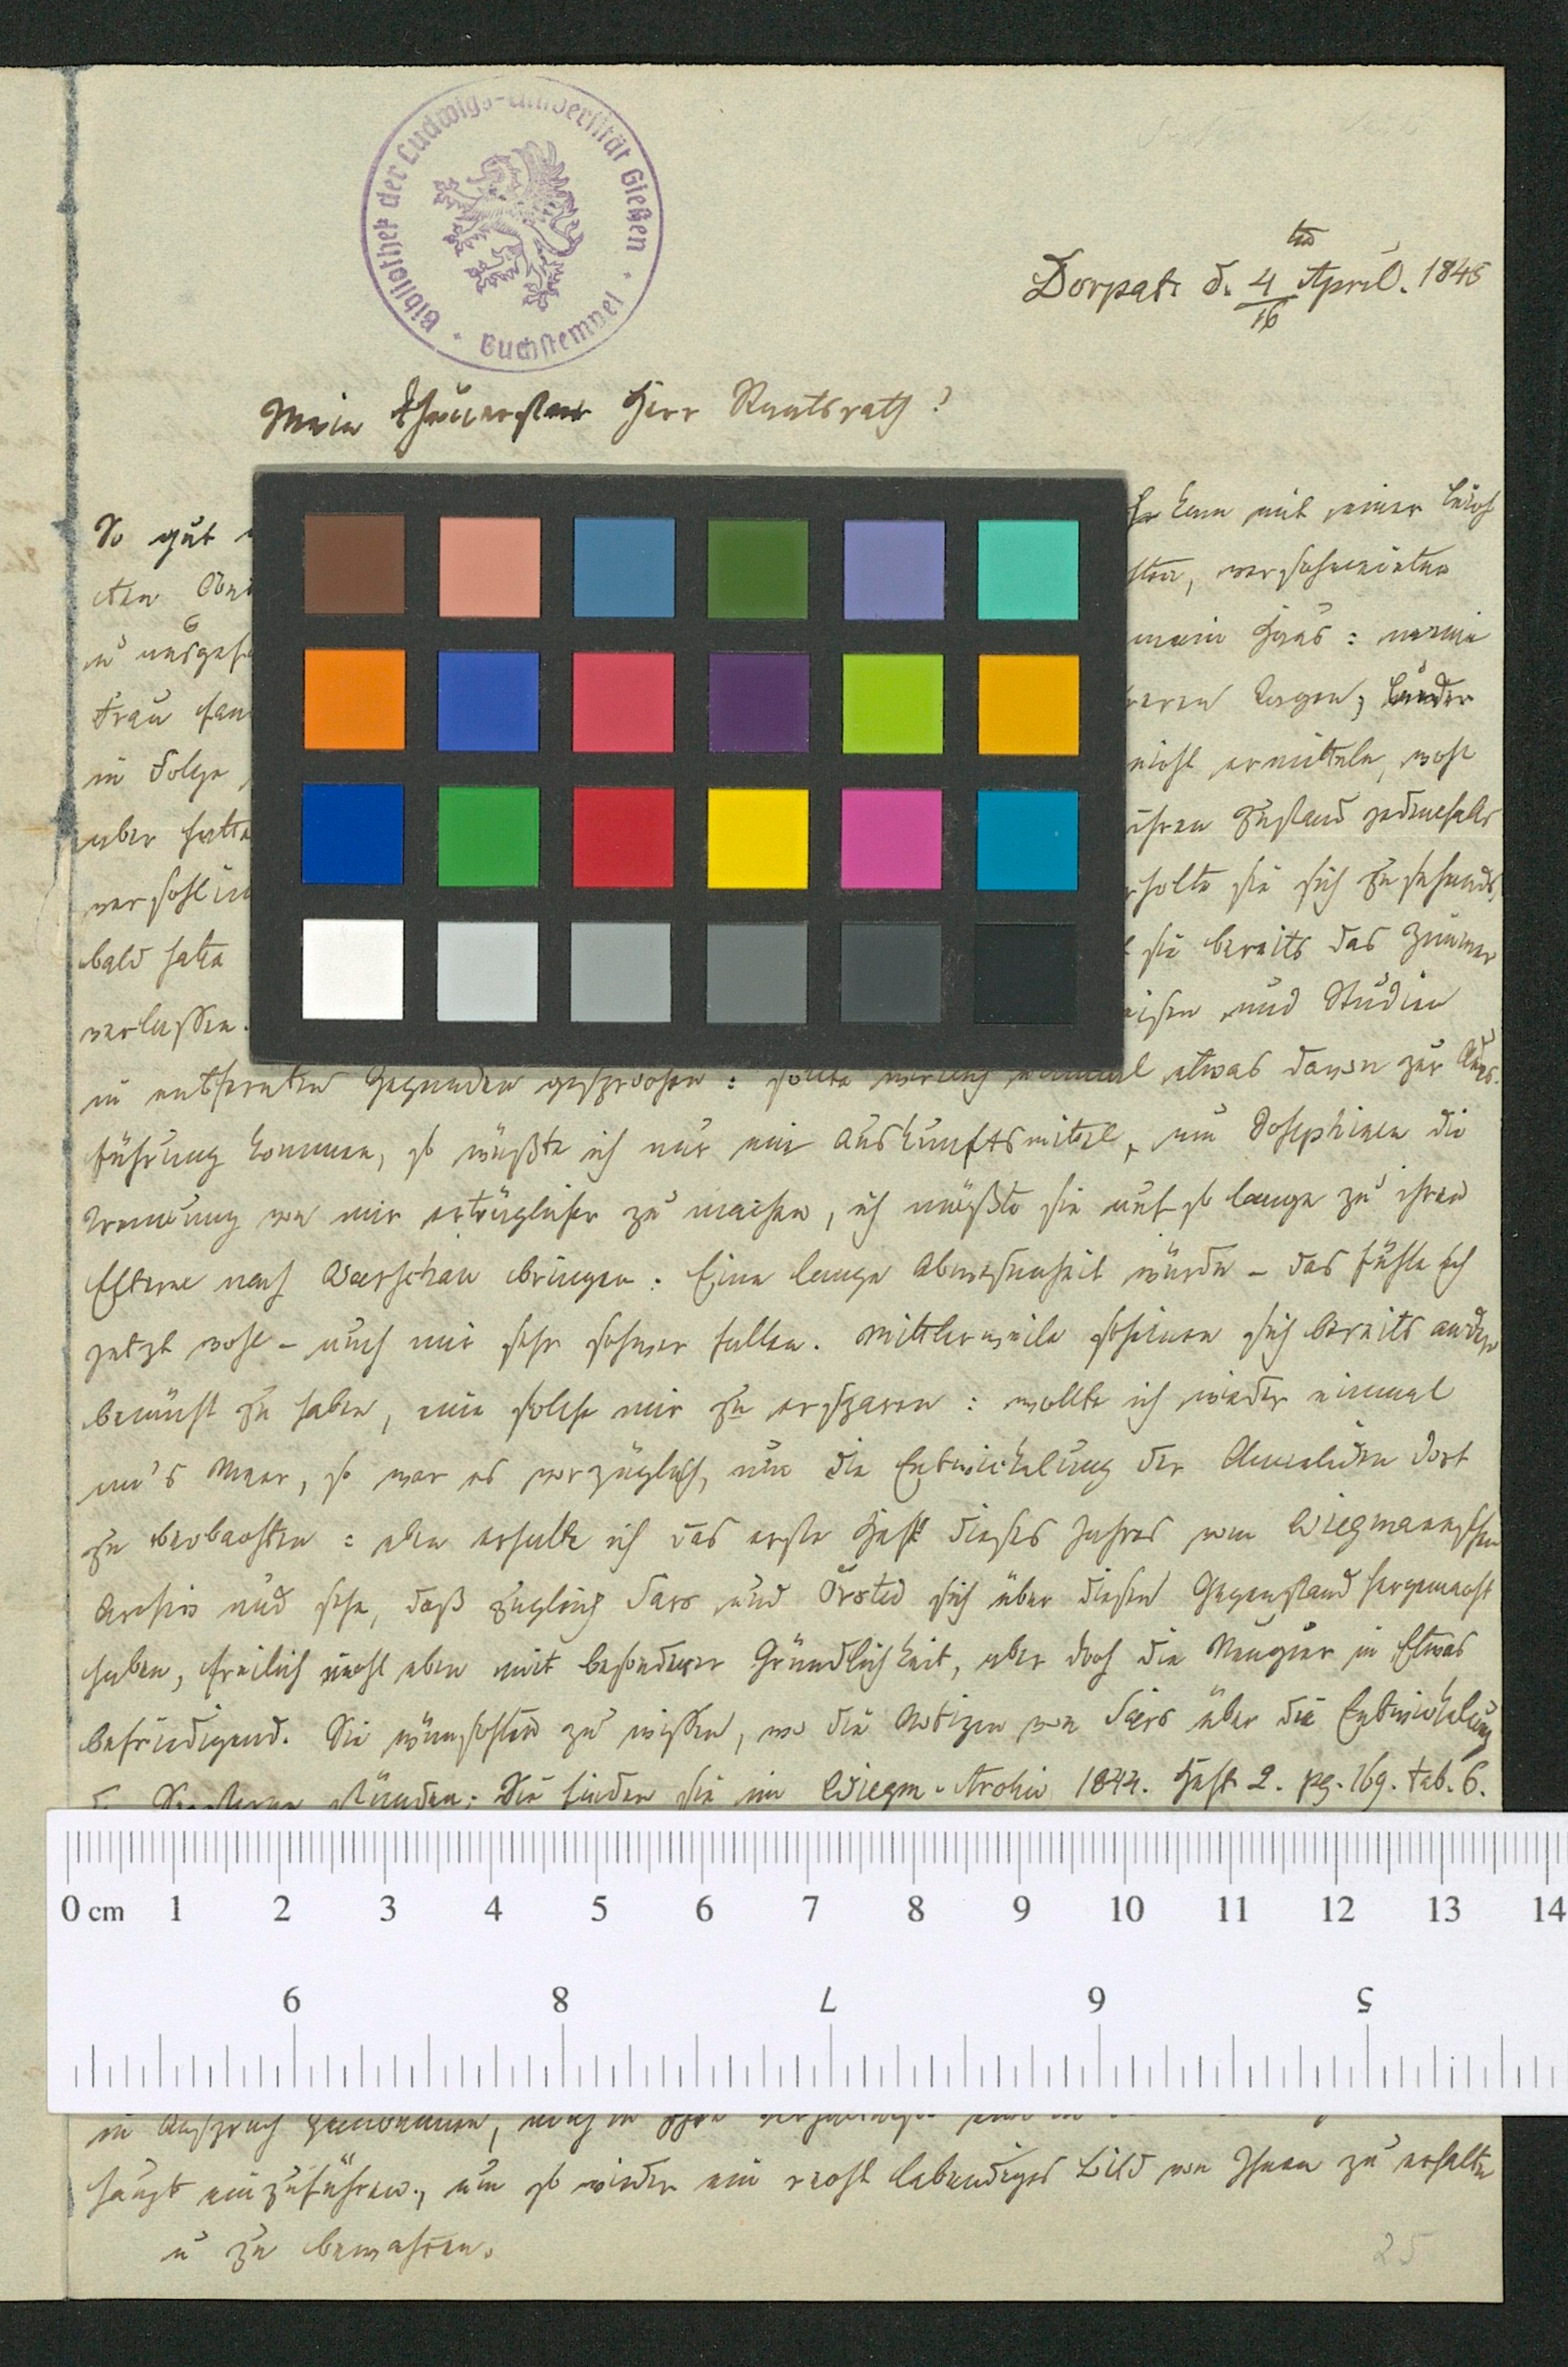 Bibliothek der Ludwigs-Universität Gießen
Buchstempel
Dorpat d. 4/16 ten April. 1845
Mein theuerster Herr Staatsrath!
So gut kam mit einer leich
ten verschneiten
u mein Haus: meine
Frau Tagen; leider
in Folge nicht ermitteln, wohl
aber hatte ihren Zustand jedenfalls
verschlim erholte sie sich zusehends,
bald hatte sie bereits das Zimmer
verlassen. und Studien
in entfernten Gegenden gesprochen: sollte wirklich einmal etwas davon zur Aus-
führung kommen, so wüßte ich nur ein Auskunftsmittel, um Josephinen die
Trennung von mir erträglicher zu machen, ich müßte sie auf so lange zu ihren
Eltern nach Warschau bringen. Eine lange Abwesenheit würde – das fühle ich
jetzt wohl – auch mir sehr schwer fallen. Mittlerweile scheinen sich bereits andere
bemüht zu haben, eine solche mir zu ersparen: wollte ich wieder einmal
an's Meer, so war es vorzüglich, um die Entwickelung der Anneliden dort
zu beobachten: eben erhalte ich das erste Heft dieses Jahres vom Wiegmannschen
Archiv und sehe, daß zugleich Sars und Örsted sich über diesen Gegenstand hergemacht
haben, freilich nicht eben mit besonderer Gründlichkeit, aber doch die Neugier in Etwas
befriedigend. Sie wünschten zu wissen, wo die Notizen von Sars über die Entwickelung
d. stünden: Sie finden sie im Wiegm. Archiv 1844. Heft 2. pg. 169. tab. 6.
0 cm 1 2 3 4 5 6 7 8 9 10 11 12 13 14
9 8 7 6 5
in Anspruch genommen, mich in Ihre
haupt einzuführen, um so wieder ein recht lebendiges Bild von Ihnen zu erhalten
u zu bewahren.
25